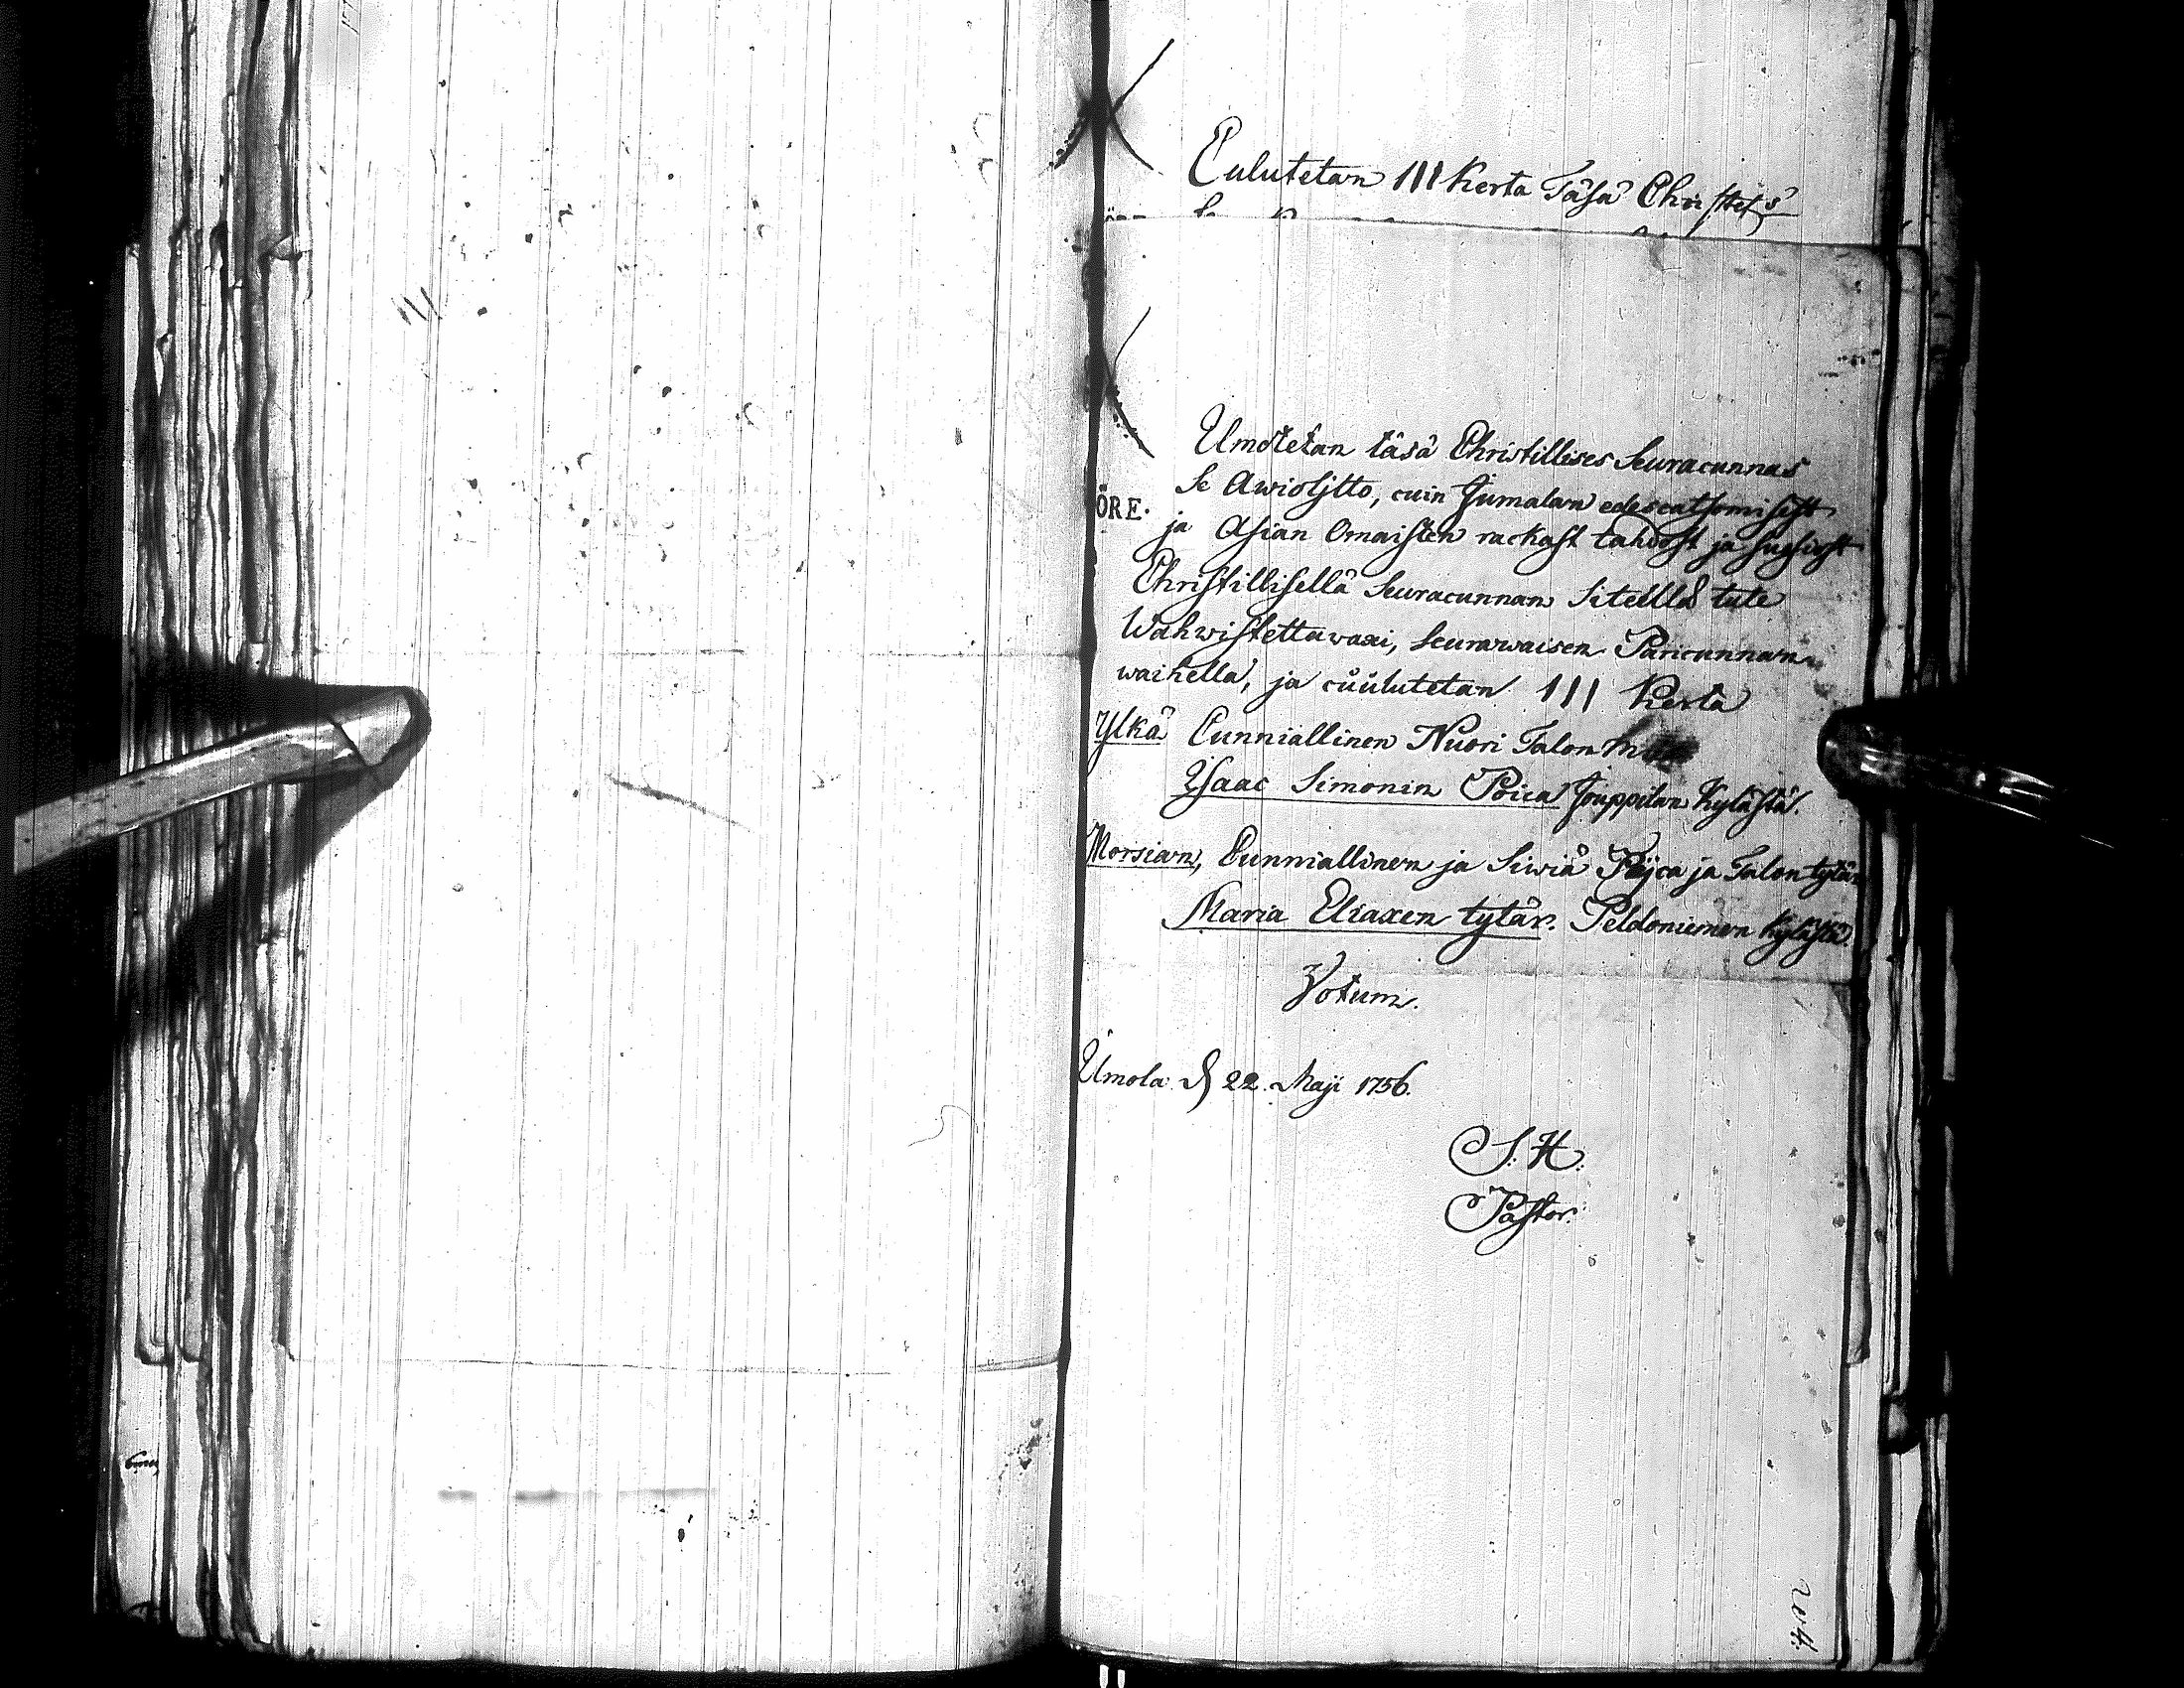 Culutetan III Kerta Täsä Christs
Ilmotetan täsä Christillises Seuracunnas
Se Awioljtto, cuin Jumalan edescatsomisest
ÖRE.
ja Asian Omaisten rackast tahdost ja suosiost
Christillisellä Seuracunnan Siteellä tule
Wahwistettawaxi, Seurawaisen Paricunnan
waihella, ja cuulutetan III Kerta
Ylkä Cunniallinen Nuori Talon
Ysaac Simonin Poica Jouppilan Kylästä.
Morsian, Cunniallinen ja Siwiä Pijca ja Talon tytär
Maria Eliaxen tytär. Peldoniemen Kylästä.
Votum.
Ilmola d 22. Maji 1756.
S. H.
Pastor.
204.